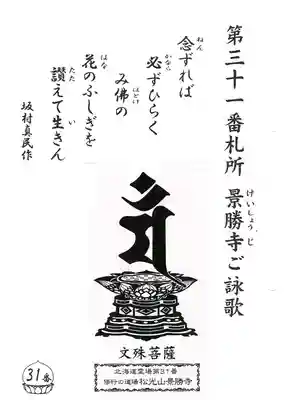 第三十一番札所 景勝寺ご詠歌
けいしょうじ
念ずれば
ねん
必ずひらく
かなら
み佛の
ほとけ
花のふしぎを
はな
讃えて生きん
たた い
坂村真民作
文殊菩薩
北海道霊場第31番
修行の道場 松光山景勝寺
31番